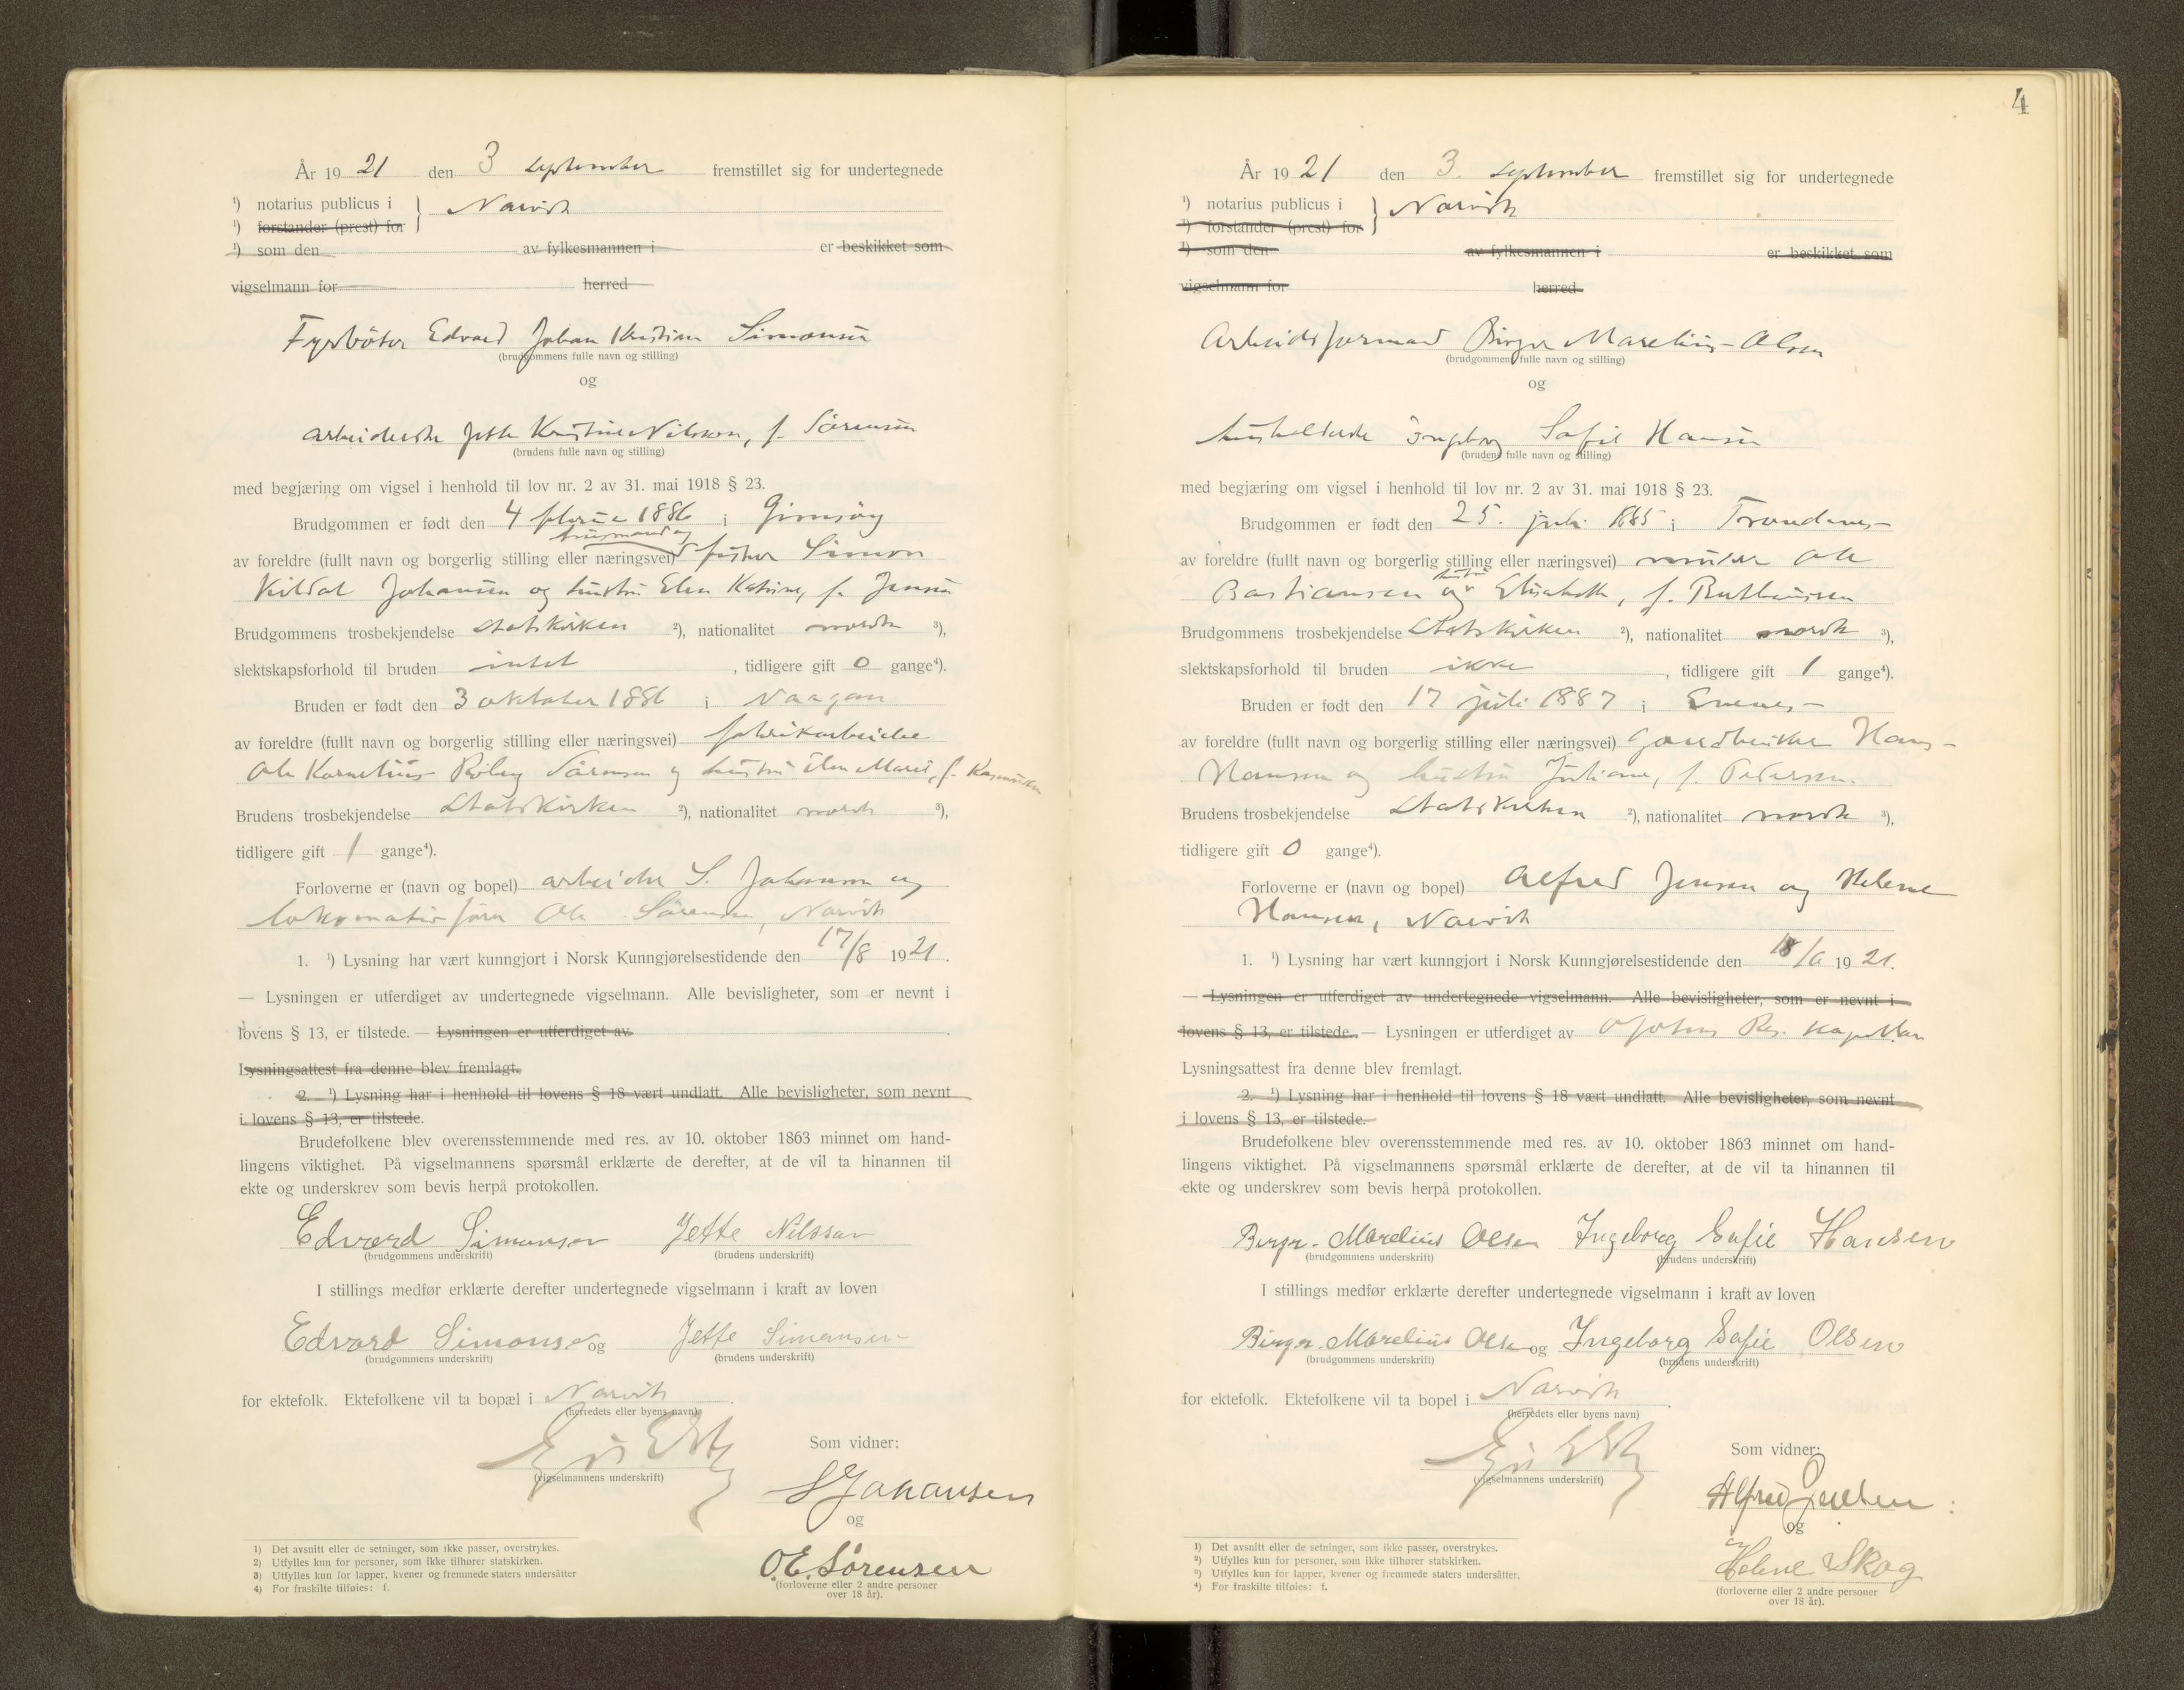 År 1921 den 3 september fremstillet sig for undertegnede
¹) notarius publicus i } Narvik
¹) forstander (prest) for
¹) som den av fylkesmannen i er beskikket som
vigselmann for herred
Fyrbøter Edvard Johan Kristian Simonsen
(brudgommens fulle navn og stilling)
og
arbeiderske Jette Kristine Nilsson, f. Sörensen
(brudens fulle navn og stilling)
med begjæring om vigsel i henhold til lov nr. 2 av 31. mai 1918 § 23.
Brudgommen er født den 4 februar 1886 i Gimsøy
husmand og
av foreldre (fullt navn og borgerlig stilling eller næringsvei) fisker Simon
Kildal Johansen og hustru Elen Katrine, f. Jensen
Brudgommens trosbekjendelse Statskirken ²), nationalitet norsk ³),
slektskapsforhold til bruden intet , tidligere gift 0 gange⁴).
Bruden er født den 3 oktober 1886 i Vaagan
av foreldre (fullt navn og borgerlig stilling eller næringsvei) fabrikarbeider
Ole Kornelius Sörensen og hustru Elen Marie, f.
Brudens trosbekjendelse Statskirken ²), nationalitet norsk ³),
tidligere gift 1 gange⁴).
Forloverne er (navn og bopel) arbeider S. Johansen og
lokomotivfører Ole Sörensen, Narvik
1. ¹) Lysning har vært kunngjort i Norsk Kunngjørelsestidende den 17/8 1921.
— Lysningen er utferdiget av undertegnede vigselmann. Alle bevisligheter, som er nevnt i
lovens § 13, er tilstede. — Lysningen er utferdiget av .
Lysningsattest fra denne blev fremlagt.
2. ¹) Lysning har i henhold til lovens § 18 vært undlatt. Alle bevisligheter, som nevnt
i lovens § 13, er tilstede.
Brudefolkene blev overensstemmende med res. av 10. oktober 1863 minnet om hand-
lingens viktighet. På vigselmannens spørsmål erklærte de derefter, at de vil ta hinannen til
ekte og underskrev som bevis herpå protokollen.
Edvard Simonsen Jette Nilssen
(brudgommens underskrift) (brudens underskrift)
I stillings medfør erklærte derefter undertegnede vigselmann i kraft av loven
Edvard Simonsen og Jette Simonsen
(brudgommens underskrift) (brudens underskrift)
for ektefolk. Ektefolkene vil ta bopæl i Narvik .
(herredets eller byens navn)
Som vidner:
(vigselmannens underskrift)
S Johansen
og
O.E. Sörensen
(forloverne eller 2 andre personer
over 18 år).
1) Det avsnitt eller de setninger, som ikke passer, overstrykes.
2) Utfylles kun for personer, som ikke tilhører statskirken.
3) Utfylles kun for lapper, kvener og fremmede staters undersåtter
4) For fraskilte tilføies: f.
4
År 1921 den 3. september fremstillet sig for undertegnede
¹) notarius publicus i } Narvik
¹) forstander (prest) for
¹) som den av fylkesmannen i er beskikket som
vigselmann for herred
Arbeidsformand Birger Marelius Olsen
(brudgommens fulle navn og stilling)
og
husholderske Ingeborg Sofie Hansen
(brudens fulle navn og stilling)
med begjæring om vigsel i henhold til lov nr. 2 av 31. mai 1918 § 23.
Brudgommen er født den 25. juli 1885 i Trondenes
av foreldre (fullt navn og borgerlig stilling eller næringsvei) Ole
hustru
Bastiansen og Elisabeth, f.
Brudgommens trosbekjendelse Statskirken ²), nationalitet norsk ³),
slektskapsforhold til bruden ikke , tidligere gift 1 gange⁴).
Bruden er født den 17 juli 1887 i Evenes
av foreldre (fullt navn og borgerlig stilling eller næringsvei) gaardbruker Hans
Hansen og hustru Juliane, f. Pedersen.
Brudens trosbekjendelse Statskirken ²), nationalitet norsk ³),
tidligere gift 0 gange⁴).
Forloverne er (navn og bopel) Alfred Jensen og Helene
Hansen, Narvik
1. ¹) Lysning har vært kunngjort i Norsk Kunngjørelsestidende den 18/6 1921.
— Lysningen er utferdiget av undertegnede vigselmann. Alle bevisligheter, som er nevnt i
lovens § 13, er tilstede. — Lysningen er utferdiget av Res. kapellan
Lysningsattest fra denne blev fremlagt.
2. ¹) Lysning har i henhold til lovens § 18 vært undlatt. Alle bevisligheter, som nevnt
i lovens § 13, er tilstede.
Brudefolkene blev overensstemmende med res. av 10. oktober 1863 minnet om hand-
lingens viktighet. På vigselmannens spørsmål erklærte de derefter, at de vil ta hinannen til
ekte og underskrev som bevis herpå protokollen.
Birger Marelius Olsen Ingeborg Sofie Hansen
(brudgommens underskrift) (brudens underskrift)
I stillings medfør erklærte derefter undertegnede vigselmann i kraft av loven
Birger Marelius Olsen og Ingeborg Sofie Olsen
(brudgommens underskrift) (brudens underskrift)
for ektefolk. Ektefolkene vil ta bopel i Narvik .
(herredets eller byens navn)
Som vidner:
(vigselmannens underskrift)
Alfred Jensen
og
Helene Skog
(forloverne eller 2 andre personer
over 18 år).
¹) Det avsnitt eller de setninger, som ikke passer, overstrykes.
²) Utfylles kun for personer, som ikke tilhører statskirken.
³) Utfylles kun for lapper, kvener og fremmede staters undersåtter.
⁴) For fraskilte tilføies: f.